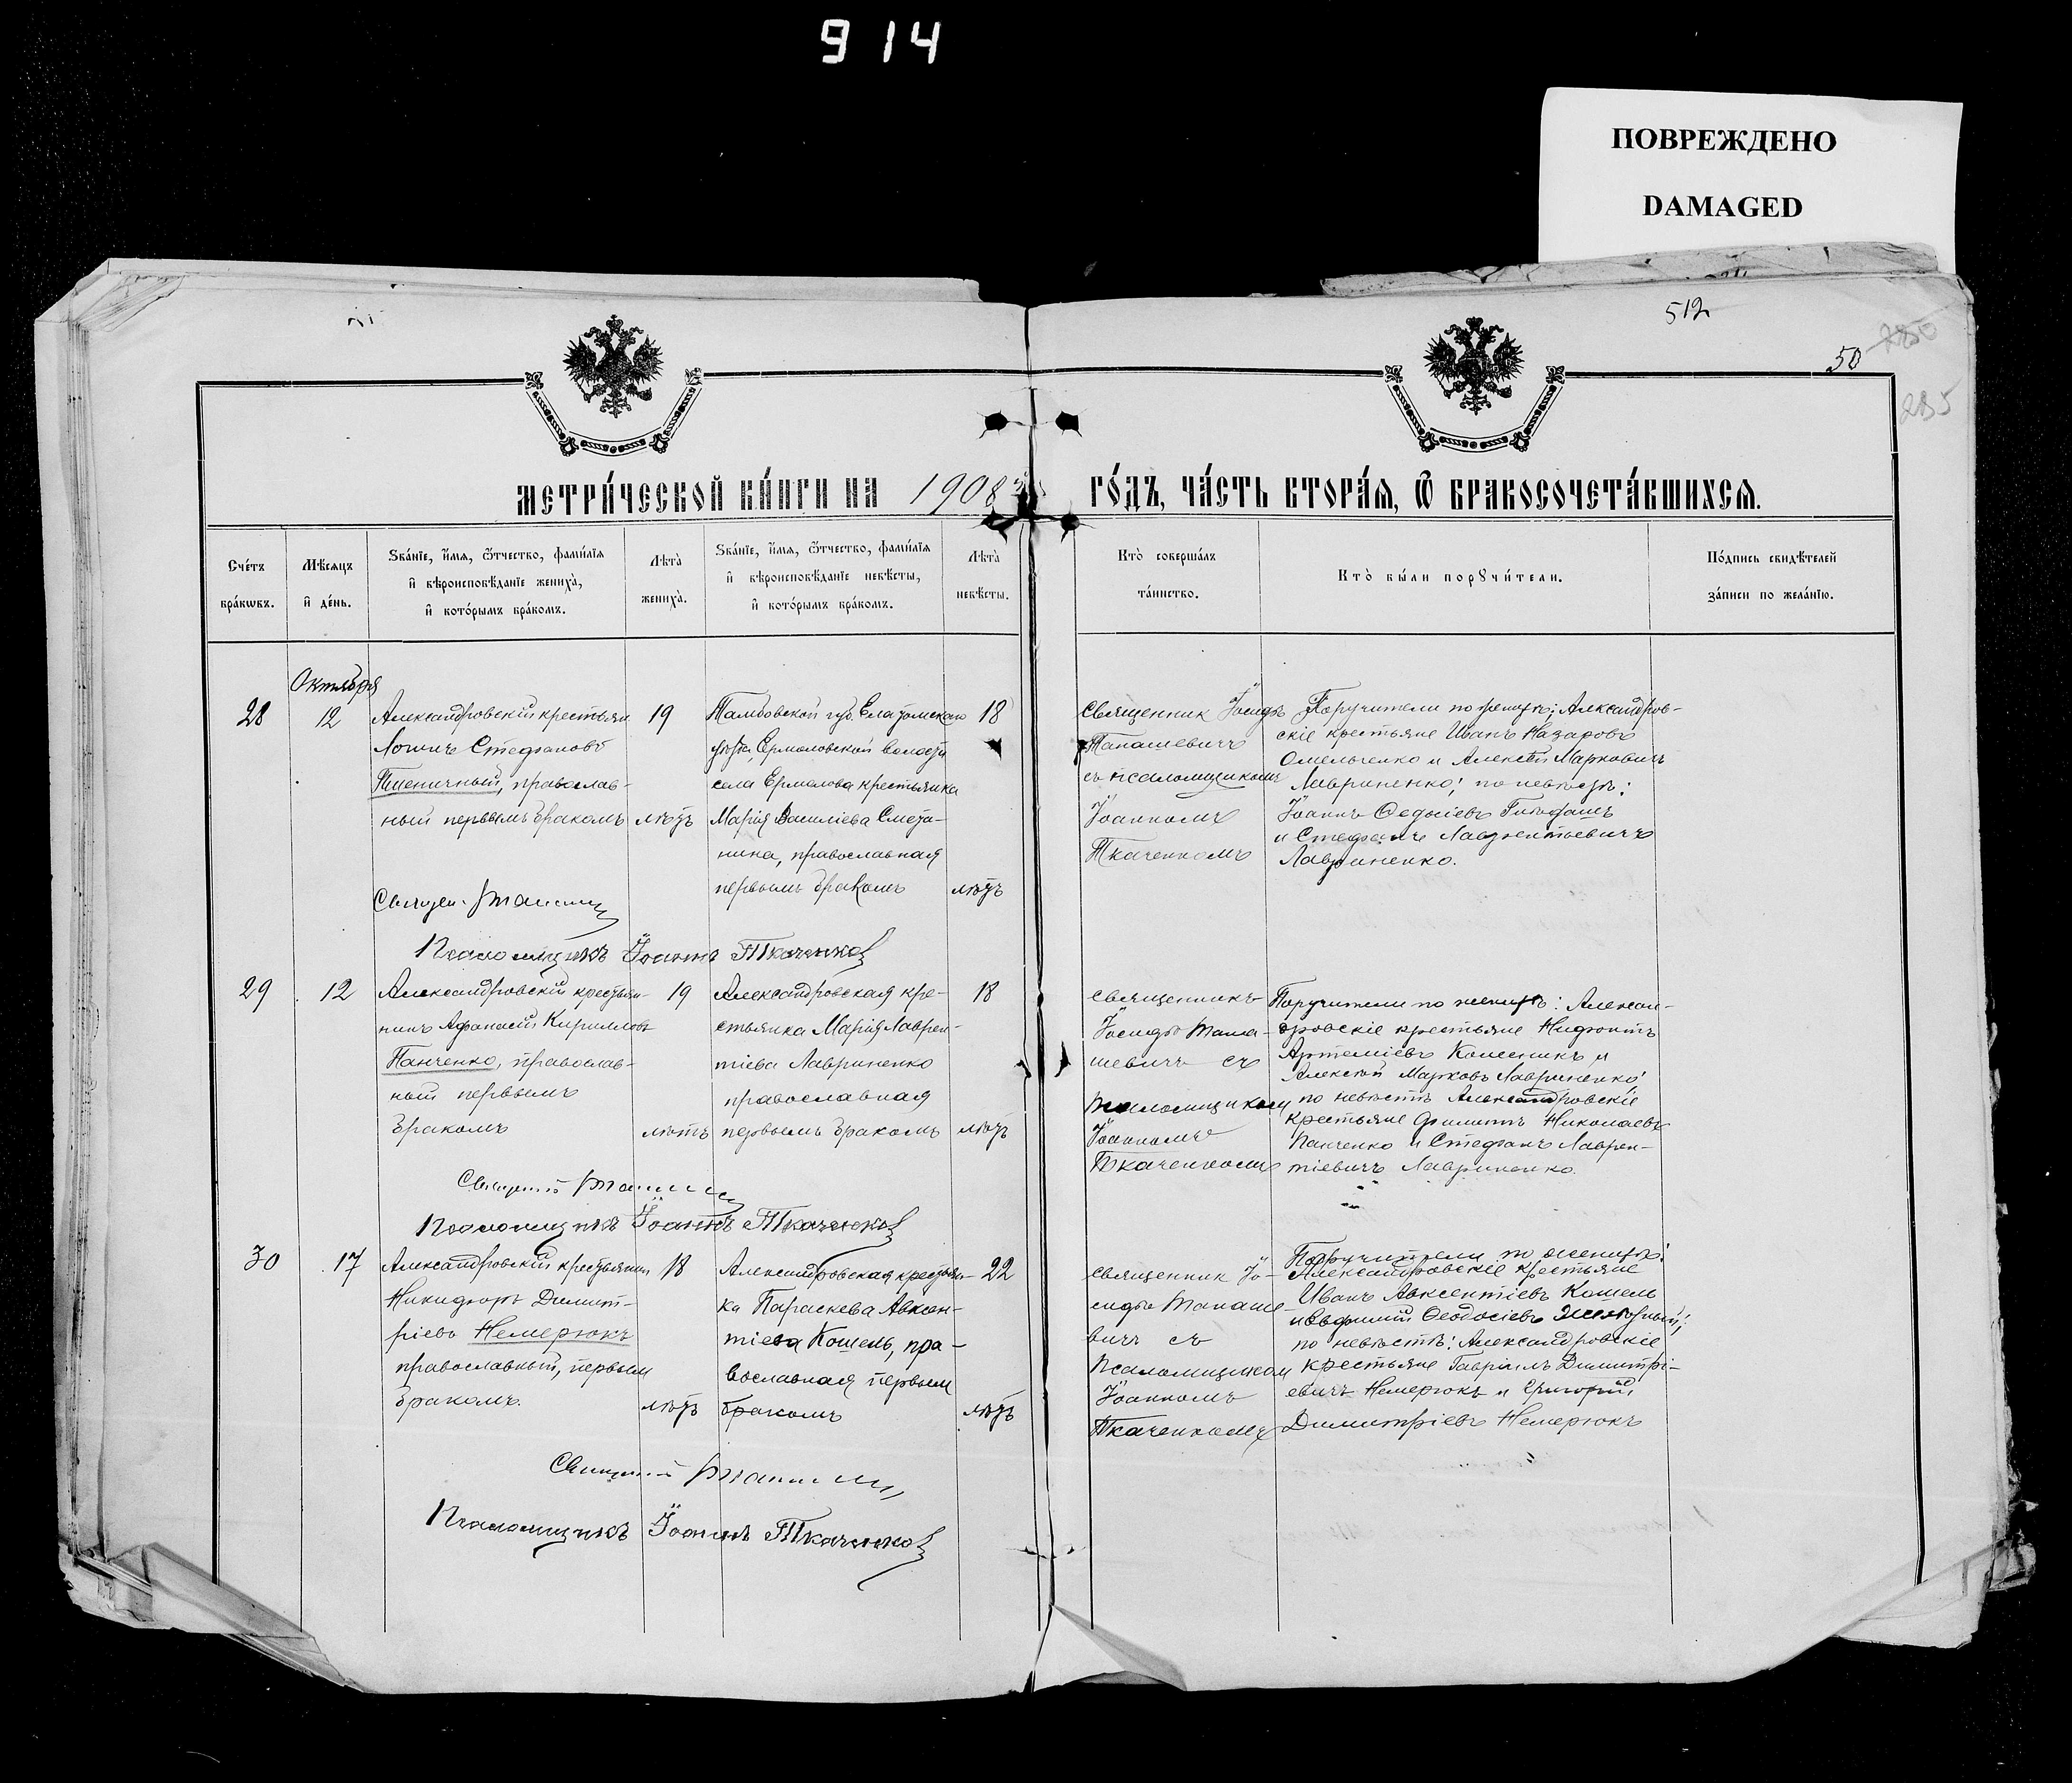 914
ПОВРЕЖДЕНО
DAMAGED
512
50
285
МЕТРИ́ЧЕСКОЙ КНИ́ГИ НА 1908
ГО́ДЪ, ЧА́СТЬ ВТОРА́Ѧ, Ѡ БРАКОСОЧЕТА́ВШИХСѦ.
Сче́тъ бра́кѡвъ.
Мѣ́сѧцъ и҆ де́нь.
Ѕва́нїе, и҆́мѧ, ѻ҆́тчество, фами́лїѧ
и҆ вѣроисповѣ́данїе жениха̀,
и҆ кото́рымъ бра́комъ.
Лѣта̀ жениха̀.
Ѕва́нїе, и҆́мѧ, ѻ҆́тчество, фами́лїѧ
и҆ вѣроисповѣ́данїе невѣ́сты,
и҆ кото́рымъ бра́комъ.
Лѣта̀ невѣ́сты.
Кто̀ соверша́лъ
та́инство.
Кто̀ бы́ли порꙋчи́тели.
По́дпись свидѣ́телей
за́писи по жела́нїю.
Октября
28
12
Александровскій крестьян
Логинъ Стефановъ
Пшеничный, православ-
ный первымъ бракомъ
19
лѣтъ
Тамбовской губ. Елатомскаго
уѣзда, Ермоловской волости
села Ермолова крестьянка
Марія Василіева Смета-
нина, православная
первымъ бракомъ
18
лѣтъ
Священник Іосифъ
Танашевичъ
съ псаломщикомъ
Іоанномъ
Ткаченкомъ
Поручители по женихѣ: Александров-
скіе крестьяне Иванъ Назаровъ
Омельченко и Алексѣй Марковичъ
Лавриненко; по невѣстѣ:
Іоаннъ Ѳедосіевъ
и Стефанъ Лаврентьевичъ
Лавриненко.
Священ.
Псаломщикъ Іоаннъ Ткаченко
29
12
Александровскій крестьян-
инъ Афанасій Кирилловъ
Панченко, православ-
ный первымъ
бракомъ
19
лѣтъ
Александровская кре-
стьянка Марія Лаврен-
тіева Лавриненко
православная
первымъ бракомъ
18
лѣтъ
священникъ
Іосифъ Тана-
шевичъ съ
псаломщикомъ
Іоанномъ
Ткаченкомъ
Поручители по женихѣ: Алексан-
дровскіе крестьяне Нифонтъ
Артеміевъ Колесникъ и
Алексѣй Марковъ Лавриненко;
по невѣстѣ Александровскіе
крестьяне Филиппъ Николаевъ
Панченко и Стефанъ Лаврен-
тіевичъ Лавриненко.
Священникъ
Псаломщикъ Іоаннъ Ткаченко
30
17
Александровскій крестьянин
Никифоръ Димит-
ріевъ Немерюкъ
православный, первым
бракомъ.
18
лѣтъ
Александровская крестьян-
ка Параскева Авксен-
тіева Кошель, пра-
вославная первым
бракомъ
22
лѣтъ
священник Іо-
сифъ Танаше-
вичъ съ
псаломщиком
Іоанномъ
Ткаченкомъ
Поручители по женихѣ:
Александровскіе крестьяне
Иванъ Авксентіевъ Кошель
и Евфимій Ѳеодосіевъ
по невѣстѣ: Александровскіе
крестьяне Гавріилъ Димитрі-
евичъ Немерюкъ и Григорій
Димитріевъ Немерюкъ
Священникъ
Псаломщикъ Іоаннъ Ткаченко